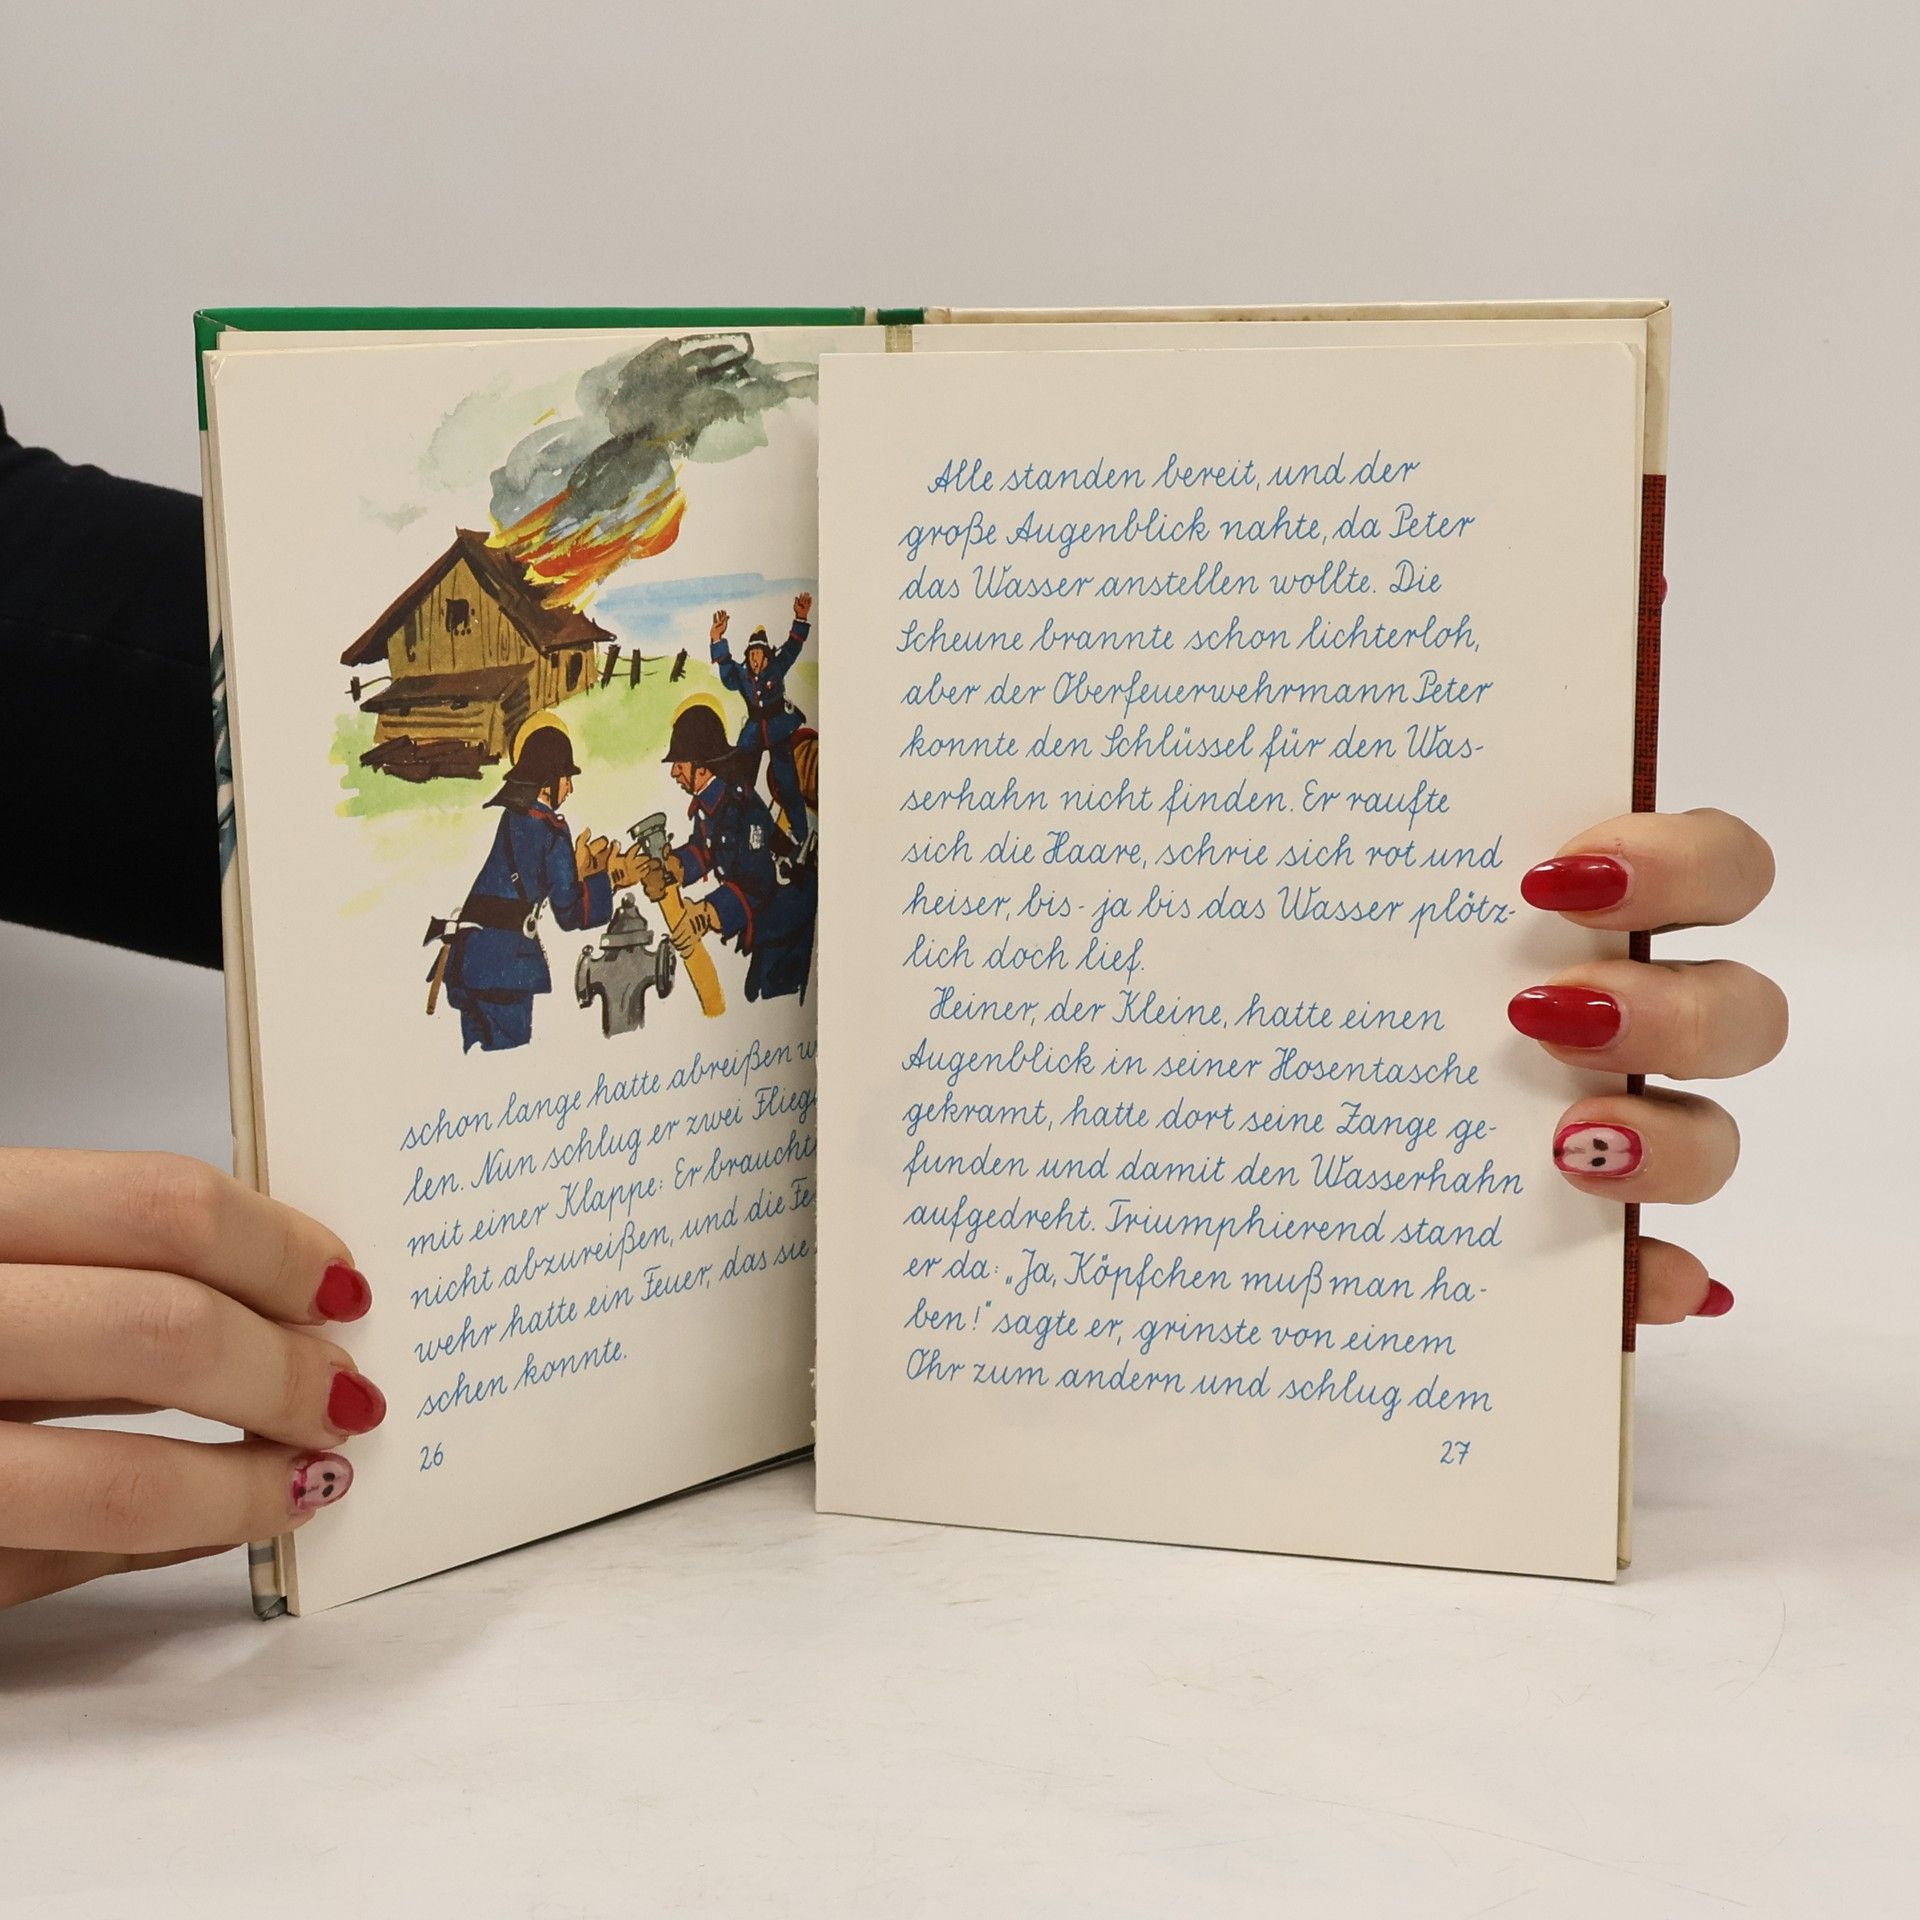 schon lange hatte abreißen
len. Nun schlug er zwei
mit einer Klappe: Er
nicht abzureißen, und die
wehr hatte ein Feuer, das sie
schen konnte.
26
Alle standen bereit, und der
große Augenblick nahte, da Peter
das Wasser anstellen wollte. Die
Scheune brannte schon lichterloh,
aber der Oberfeuerwehrmann Peter
konnte den Schlüssel für den Was-
serhahn nicht finden. Er raufte
sich die Haare, schrie sich rot und
heiser, bis- ja bis das Wasser plötz-
lich doch lief.
Heiner, der Kleine, hatte einen
Augenblick in seiner Hosentasche
gekramt, hatte dort seine Zange ge-
funden und damit den Wasserhahn
aufgedreht. Triumphierend stand
er da: „Ja, Köpfchen muß man ha-
ben!" sagte er, grinste von einem
Ohr zum andern und schlug dem
27